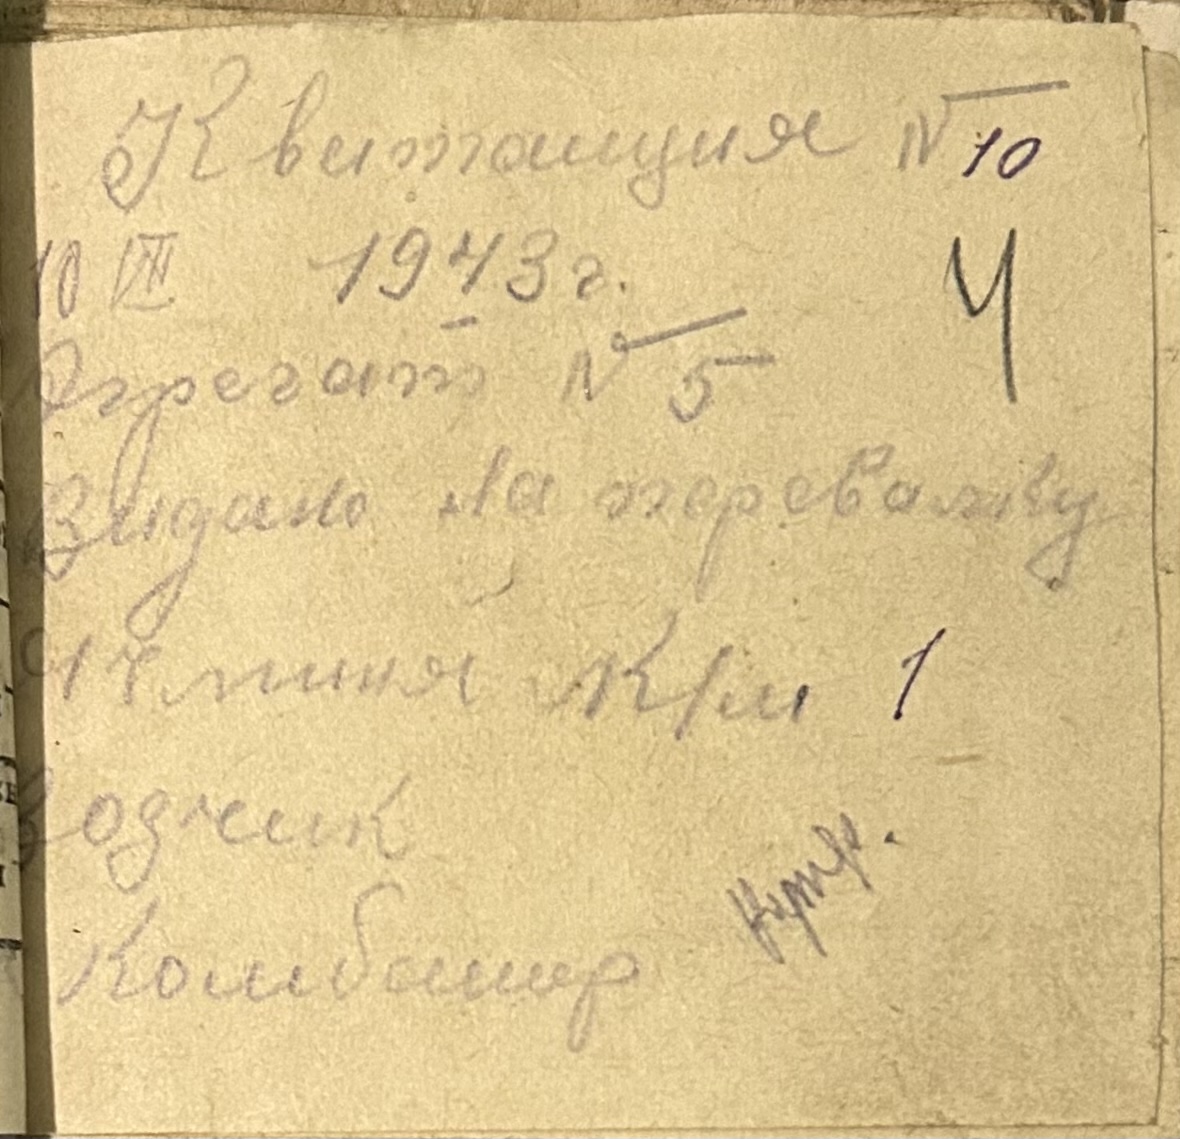 Квитанция № 10
10 VII 1943 г. 4
Агрегат № 5
Видано на перевалку
К/м 1
Возчик
Комбаинер